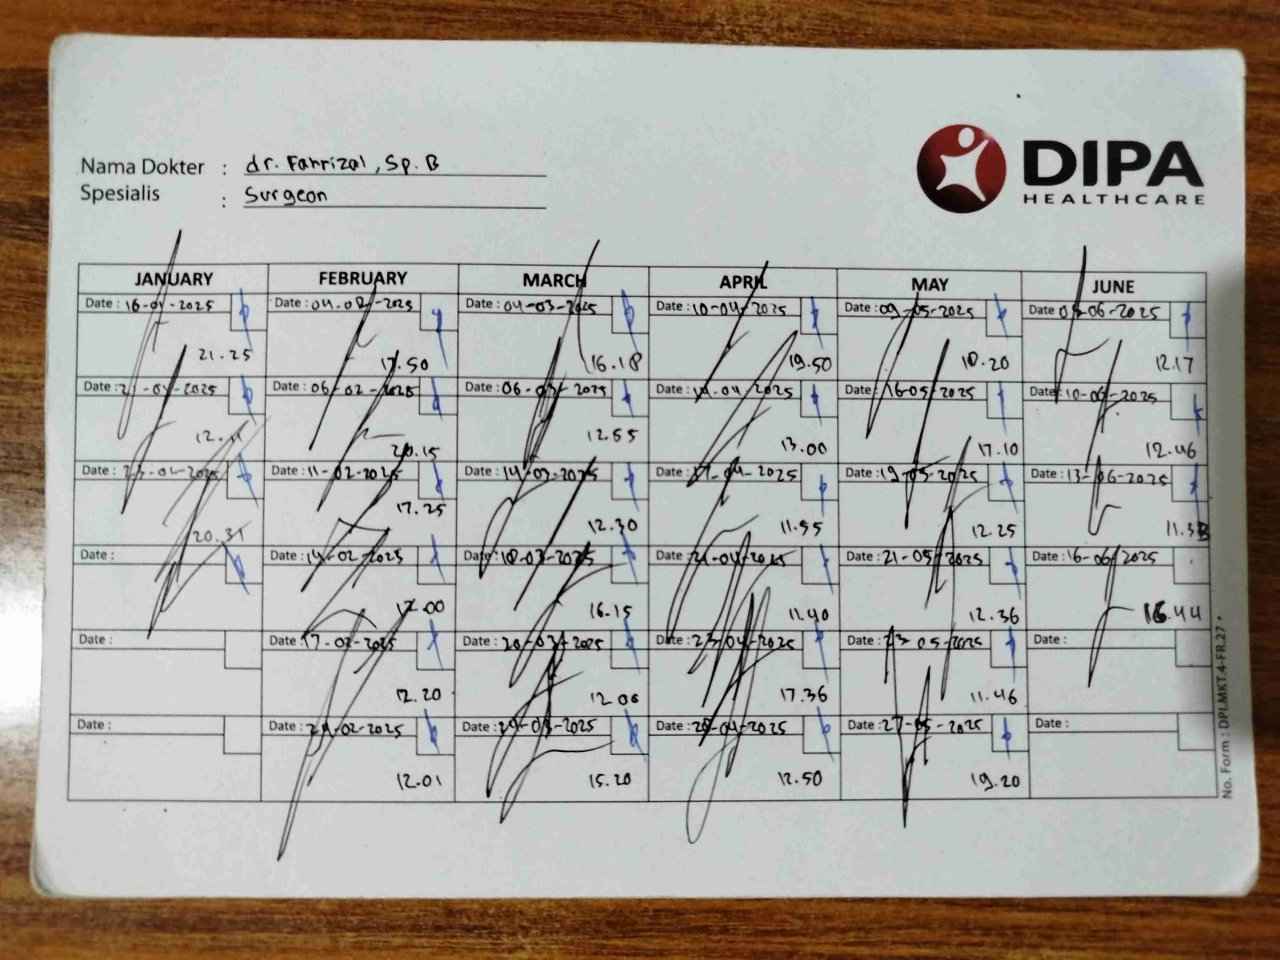 Nama Dokter : dr. Fahrizal, Sp. B
Spesialis : Surgeon
DIPA
HEALTHCARE
JANUARY FEBRUARY MARCH APRIL MAY JUNE
Date : 16-01-2025 Date : 04-02-2025 Date : 04-03-2025 Date : 10-04-2025 Date : 09-05-2025 Date 05-06-2025
21.25 17.50 16.18 19.50 18.20 12.17
Date : 21-01-2025 Date : 06-02-2025 Date : 06-03-2025 Date : 14-04-2025 Date : 16-05-2025 Date : 10-06-2025
12.11 20.15 12.55 13.00 17.10 12.46
Date : 23-01-2025 Date : 11-02-2025 Date : 14-03-2025 Date : 17-04-2025 Date : 19-05-2025 Date : 13-06-2025
20.31 17.25 12.30 11.55 12.25
Date : Date : 14-02-2025 Date : 18-03-2025 Date : 21-04-2025 Date : 21-05-2025 Date : 16-06-2025
17.00 16.15 11.40 12.36 16.44
Date : Date : 17-02-2025 Date : 20-03-2025 Date : 23-04-2025 Date : 23-05-2025 Date :
12.20 12.06 17.36 11.46
Date : Date : -02-2025 Date : -03-2025 Date : 28-04-2025 Date : 27-05-2025 Date :
12.01 15.20 12.50 19.20
No. Form : DPI.MKT.4-FR.27